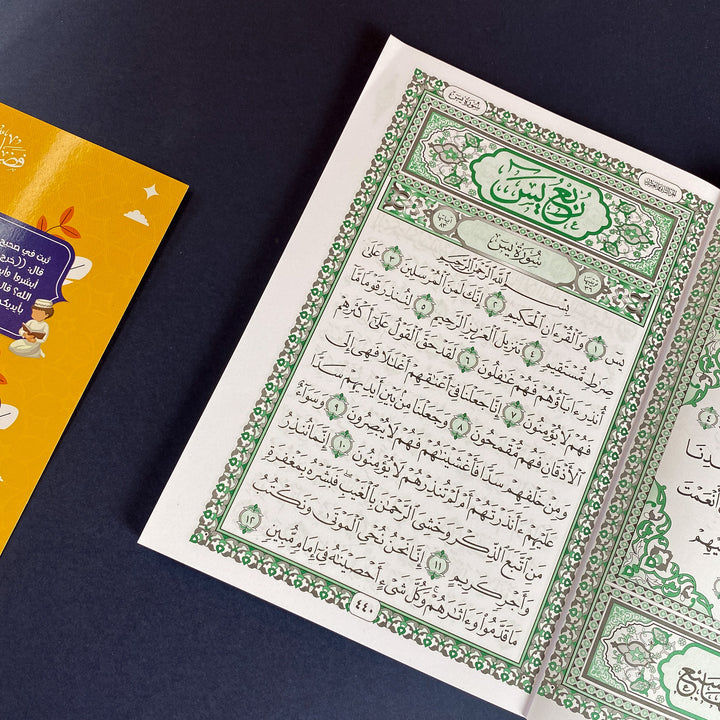 سُورَةُ يسٓ
رُبْعُ يسٓ
سُورَةُ يسٓ
بِسْمِ ٱللَّهِ ٱلرَّحْمَٰنِ ٱلرَّحِيمِ
يسٓ ١ وَٱلْقُرْءَانِ ٱلْحَكِيمِ ٢ إِنَّكَ لَمِنَ ٱلْمُرْسَلِينَ ٣ عَلَىٰ
صِرَٰطٍ مُّسْتَقِيمٍ ٤ تَنزِيلَ ٱلْعَزِيزِ ٱلرَّحِيمِ ٥ لِتُنذِرَ قَوْمًا مَّآ
أُنذِرَ ءَابَآؤُهُمْ فَهُمْ غَٰفِلُونَ ٦ لَقَدْ حَقَّ ٱلْقَوْلُ عَلَىٰٓ أَكْثَرِهِمْ
فَهُمْ لَا يُؤْمِنُونَ ٧ إِنَّا جَعَلْنَا فِىٓ أَعْنَٰقِهِمْ أَغْلَٰلًا فَهِىَ إِلَى
ٱلْأَذْقَانِ فَهُم مُّقْمَحُونَ ٨ وَجَعَلْنَا مِنۢ بَيْنِ أَيْدِيهِمْ سَدًّا
وَمِنْ خَلْفِهِمْ سَدًّا فَأَغْشَيْنَٰهُمْ فَهُمْ لَا يُبْصِرُونَ ٩ وَسَوَآءٌ
عَلَيْهِمْ ءَأَنذَرْتَهُمْ أَمْ لَمْ تُنذِرْهُمْ لَا يُؤْمِنُونَ ١٠ إِنَّمَا تُنذِرُ
مَنِ ٱتَّبَعَ ٱلذِّكْرَ وَخَشِىَ ٱلرَّحْمَٰنَ بِٱلْغَيْبِ فَبَشِّرْهُ بِمَغْفِرَةٍ
وَأَجْرٍ كَرِيمٍ ١١ إِنَّا نَحْنُ نُحْىِ ٱلْمَوْتَىٰ وَنَكْتُبُ
مَا قَدَّمُوا۟ وَءَاثَٰرَهُمْ وَكُلَّ شَىْءٍ أَحْصَيْنَٰهُ فِىٓ إِمَامٍ مُّبِينٍ ١٢
٤٤٠
ثبت في صحيح
قال: ((خرج
أبشروا
الله؟ قال